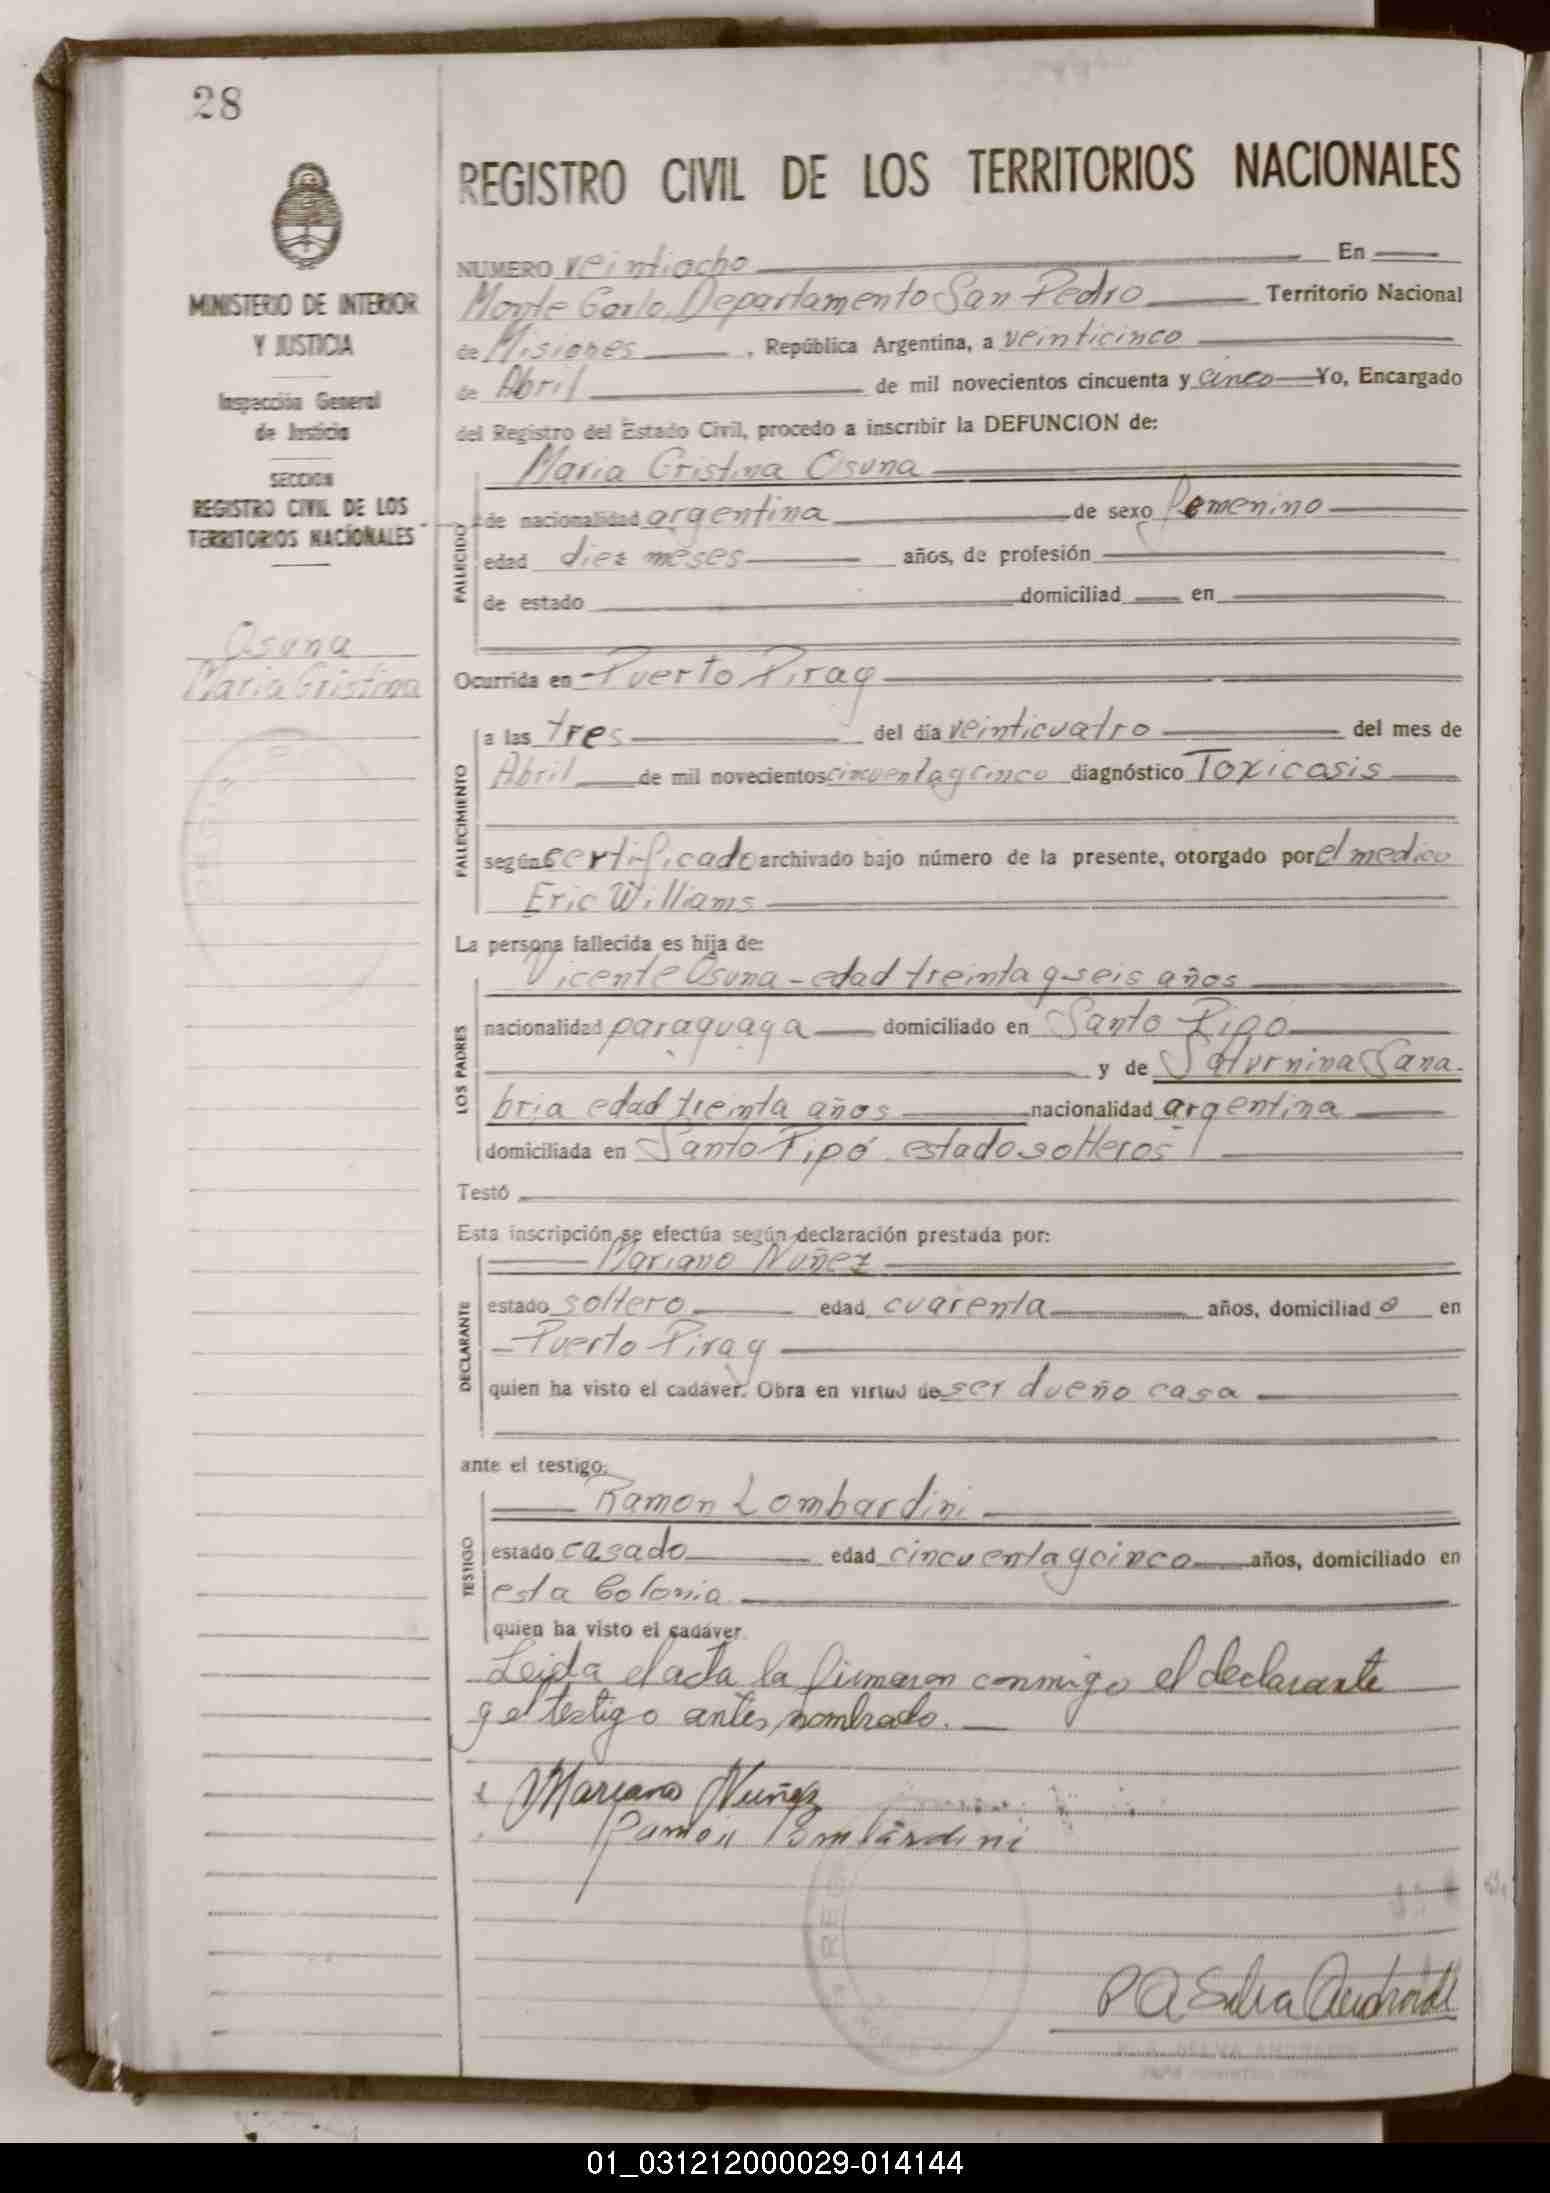 28
REGISTRO CIVIL DE LOS TERRITORIOS NACIONALES
MINISTERIO DE INTERIOR
Y JUSTICIA
Inspección General
de Justicia
SECCION
REGISTRO CIVIL DE LOS
TERRITORIOS NACIONALES
Osuna
Maria Cristina
NUMERO veintiocho En
Monte Carlo, Departamento San Pedro Territorio Nacional
de Misiones, República Argentina, a veinticinco
de Abril de mil novecientos cincuenta y cinco Yo, Encargado
del Registro del Estado Civil, procedo a inscribir la DEFUNCION de:
Maria Cristina Osuna
FALLECIDO
de nacionalidad argentina de sexo femenino
edad diez meses años, de profesión
de estado domiciliad en
Ocurrida en Puerto Piray
FALLECIMIENTO
a las tres del día veinticuatro del mes de
Abril de mil novecientos cincuenta y cinco diagnóstico Toxicosis
según certificado archivado bajo número de la presente, otorgado por el medico
Eric Williams
La persona fallecida es hija de:
LOS PADRES
Vicente Osuna - edad treinta y seis años
nacionalidad paraguaya domiciliado en Santo Pipó
y de Saturnina Sana-
bria edad treinta años nacionalidad argentina
domiciliada en Santo Pipó estado solteros
Testó
Esta inscripción se efectúa según declaración prestada por:
DECLARANTE
Mariano Nuñez
estado soltero edad cuarenta años, domiciliado en
Puerto Piray
quien ha visto el cadáver. Obra en virtud de ser dueño casa
ante el testigo:
TESTIGO
Ramon Lombardini
estado casado edad cincuenta y cinco años, domiciliado en
esta Colonia
quien ha visto el cadáver.
Leida el acta la firmaron conmigo el declarante
y el testigo antes nombrado.
Mariano Nuñez
Ramón Lombardini
P A Silva Andrade
01_031212000029-014144